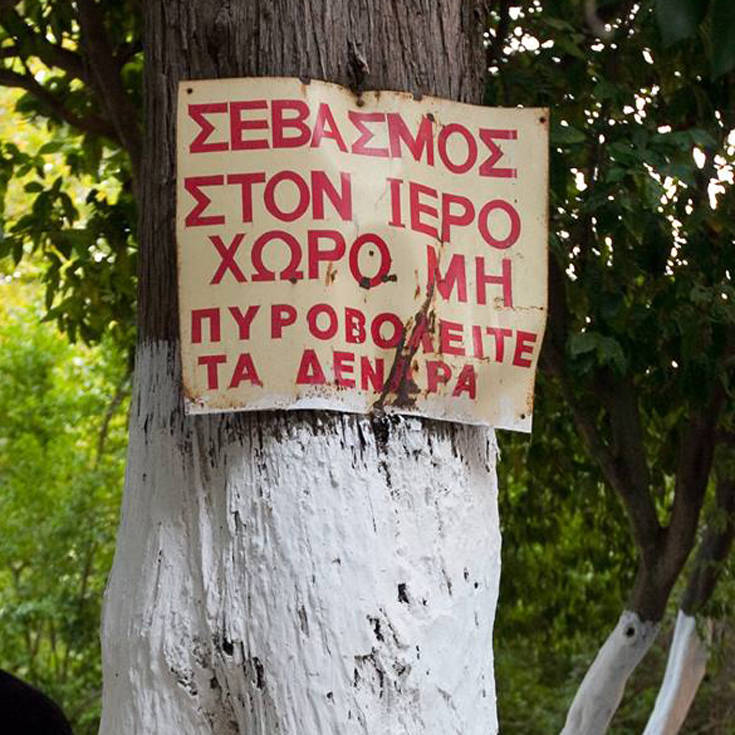 ΣΕΒΑΣΜΟΣ
ΣΤΟΝ ΙΕΡΟ
ΧΩΡΟ ΜΗ
ΠΥΡΟΒΟΛΕΙΤΕ
ΤΑ ΔΕΝΔΡΑ